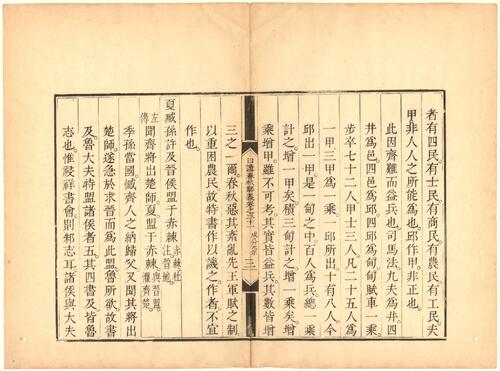 者有四民有士民有商民有農民有工民夫
甲非人人之所能為也邱作甲非正也
此因齊難而益兵也司馬法九夫為井四
井為邑四邑為邱四邱為甸甸賦車一乗
步卒七十二人甲士三人凡二十五人為
一甲三甲為一乗一邱所出十有八人今
邱出一甲是一甸之中百人為兵總一乗
計之增一甲矣積三甸計之增一乗矣增
乗增甲雖不可考其實皆益兵其數皆增
日講春秋解義卷之三十一 成公元年 三
三之一爾春秋惡其紊亂先王軍賦之制
以重困農民故特書作以譏之作者不宜
作也
夏臧孫許及晉侯盟于赤棘 赤棘杜註晉地
左傳聞齊將出楚師夏盟于赤棘 與晉盟懼齊楚
季孫當國憾齊人之納歸父又聞其將出
楚師遂急於求晉而為此盟魯所欲故書
及魯大夫特盟諸侯者五其四書及皆魯
志也惟祲祥書會則邾志耳諸侯與大夫